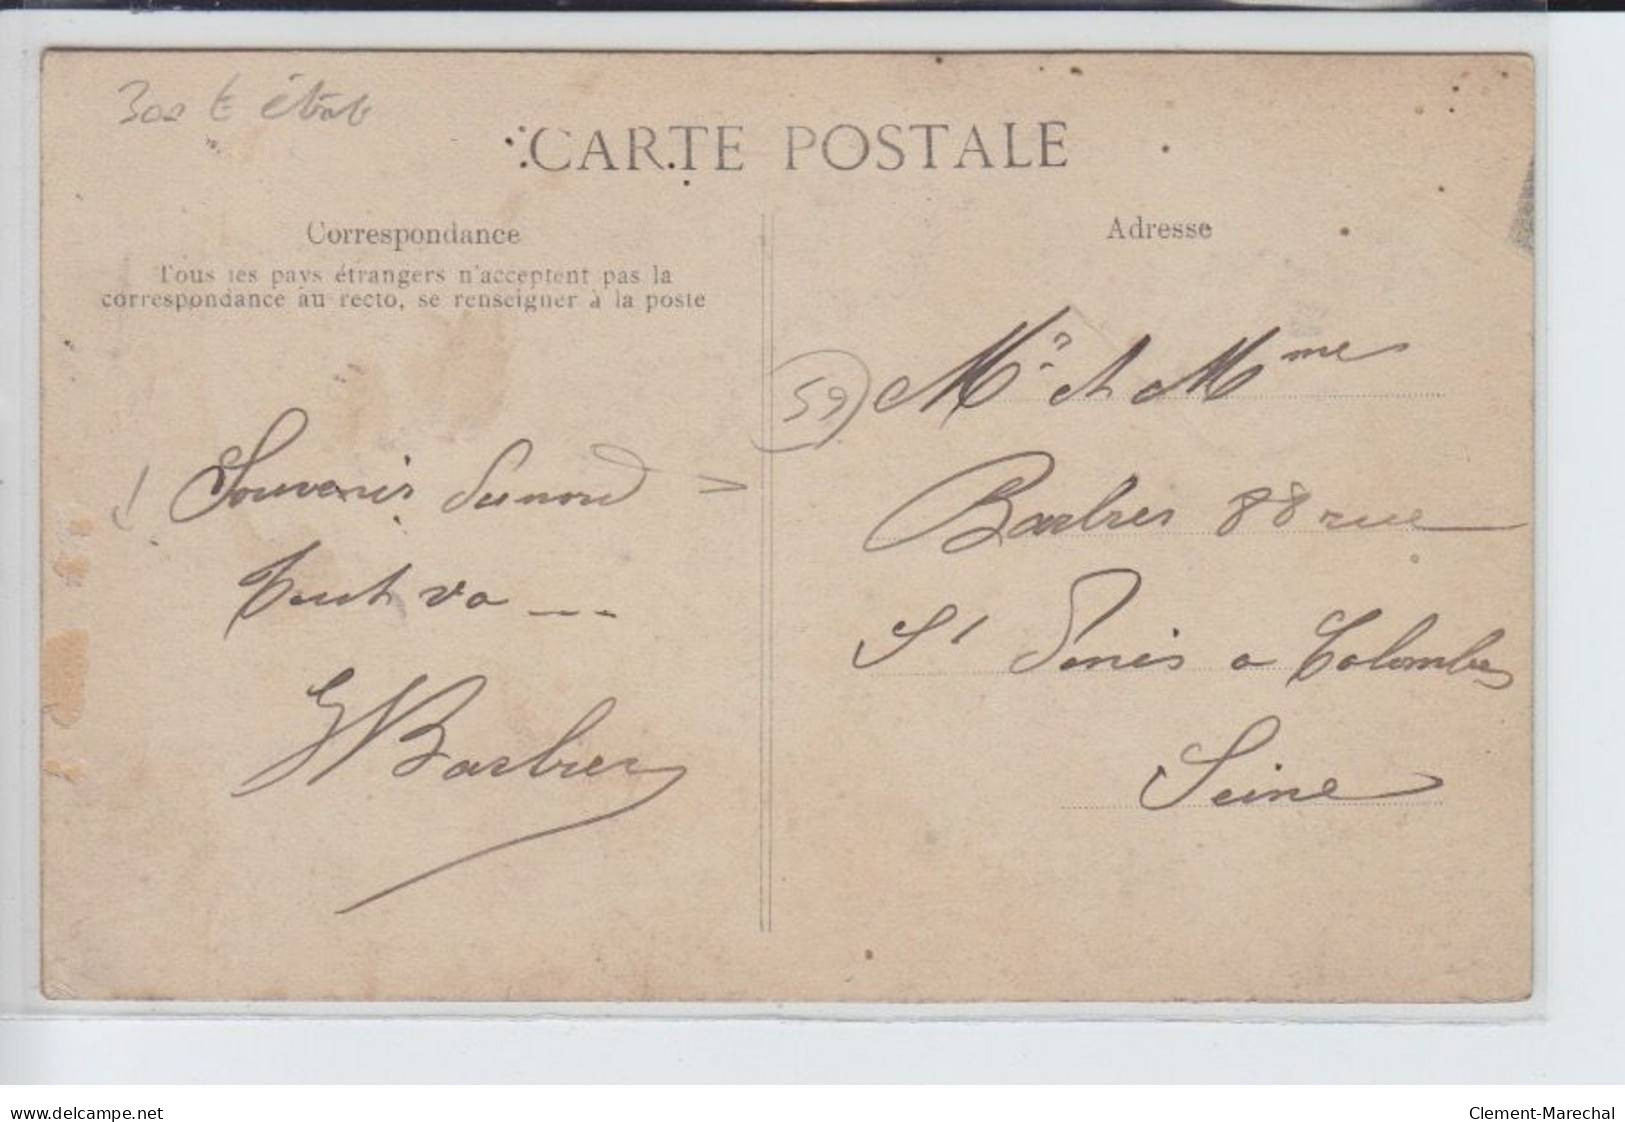 300 € état
CARTE POSTALE
Correspondance
Tous les pays étrangers n'acceptent pas la
correspondance au recto, se renseigner à la poste
Souvenir du nord
tout va ---
Barbier
Adresse
59
Mr et Mme
Barbier 88 rue
St Denis a Colombes
Seine
www.delcampe.net
Clement-Marechal